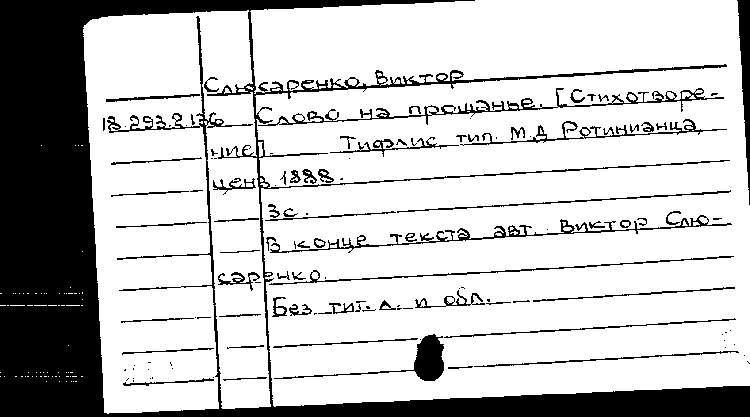 Слюсаренко, Виктор
18.293.2.136 Слово на прощанье. [Стихотворе-
ние]. Тифлис, тип. М.Д Ротинианца,
ценз. 1888.
3с.
В конце текста авт. Виктор Слю-
саренко.
Без тит. л. и обл.